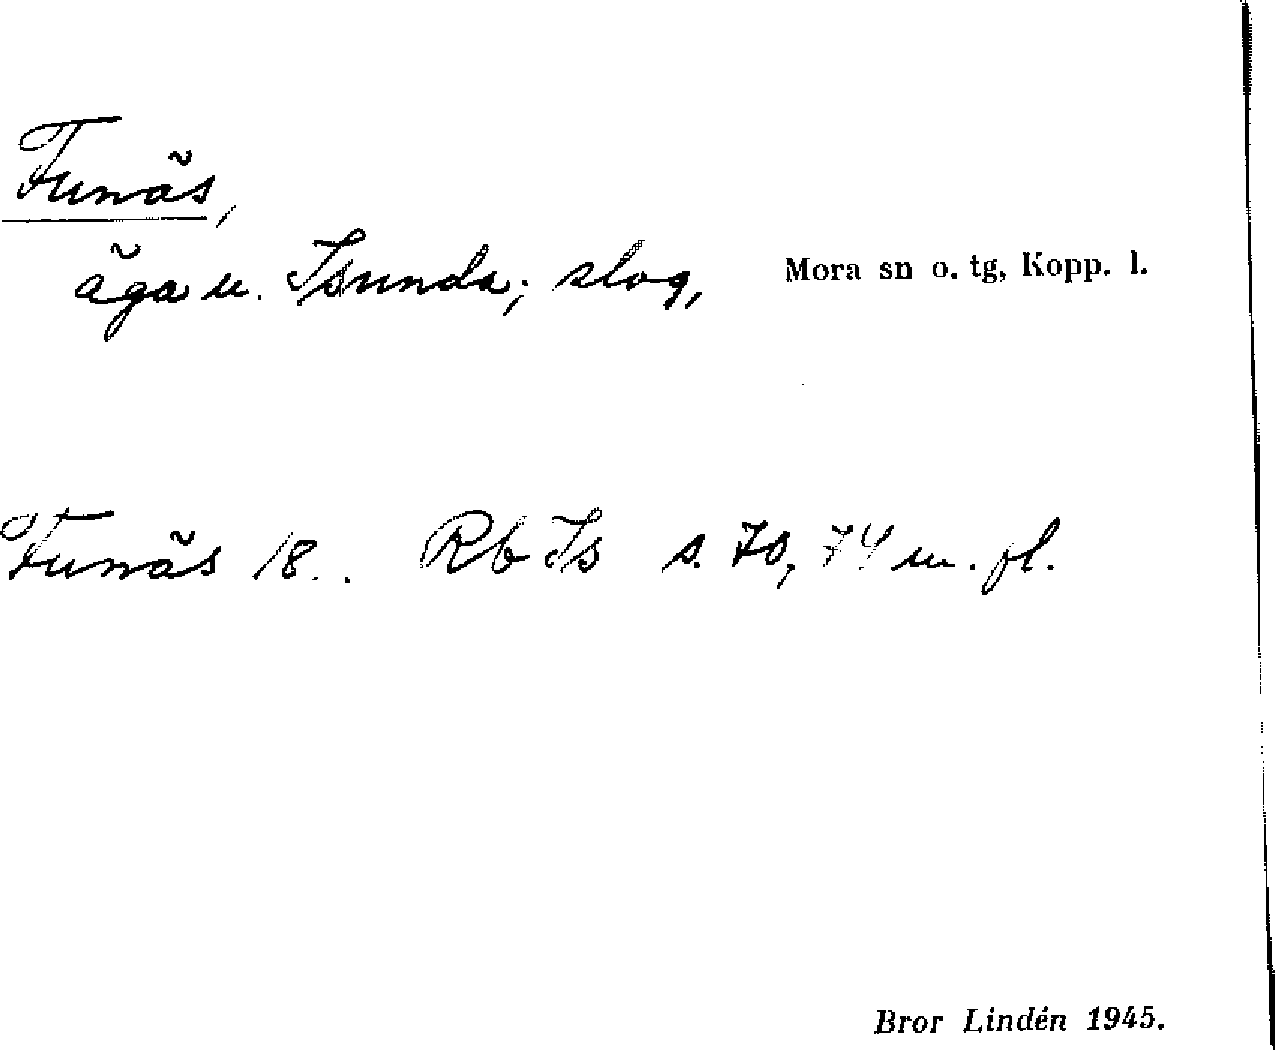 Tunäs,
äga u. Isunda; slog,
Mora sn o. tg, Kopp. l.
Tunäs 18.. Rb Is s. 70, 74 m. fl.
Bror Lindén 1945.